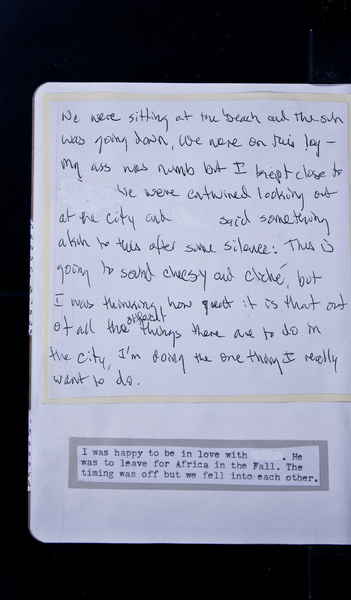 We were sitting at the beach and the sun
was going down, we were on this log —
my ass was numb but I kept close to
We were entwined looking out
at the city and said something
akin to this after some silence: This is
going to sound cheesy and cliché, but
I was thinking how great it is that out
of all the different things there are to do in
the city, I'm doing the one thing I really
want to do.
I was happy to be in love with . He
was to leave for Africa in the Fall. The
timing was off but we fell into each other.